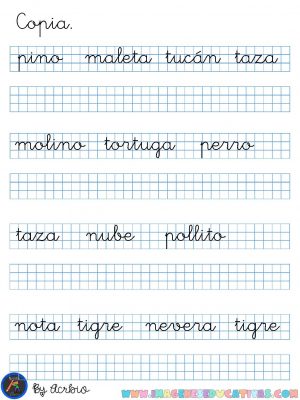 Copia.
pino maleta tucán taza
molino tortuga perro
taza nube pollito
nota tigre nevera tigre
By Acrbio
www.imageneseducativas.com